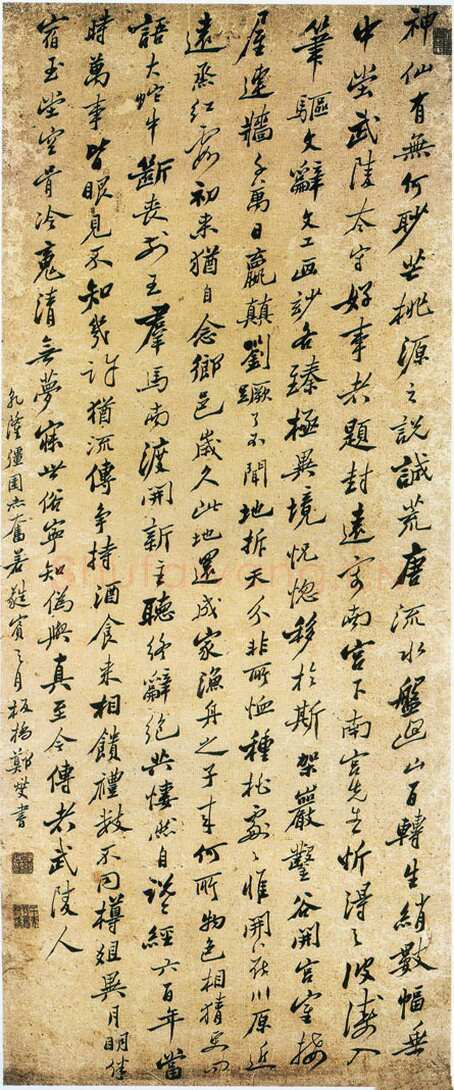 神仙有無何眇芒桃源之說誠荒唐流水盤迴山百轉生綃數幅垂
中堂武陵太守好事者題封遠寄南宮下南宮先生忻得之波濤入
筆驅文辭文工畫妙各臻極異境恍惚移於斯架巖鑿谷開宮室接
屋連牆千萬日嬴顛劉蹶了不聞地拆天分非所恤種桃處〻惟開花川原近
遠蒸紅霞初來猶自念鄉邑歲久此地還成家漁舟之子來何所物色相猜更問
語大蛇中斷喪前王羣馬南渡開新主聽終辭絕共悽然自說經六百年當
時萬事皆眼見不知幾許猶流傳爭持酒食來相饋禮數不同樽俎異月明伴
宿玉堂空骨冷魂清無夢寐世俗寧知偽與真至今傳者武陵人
乾隆彊圉赤奮若蕤賓之月板橋鄭燮書